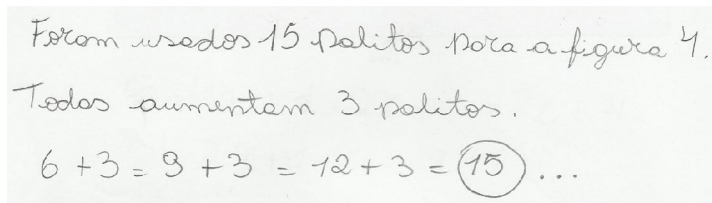 Foram usados 15 palitos para a figura 4.
Todas aumentam 3 palitos.
6 + 3 = 9 + 3 = 12 + 3 = 15 ...